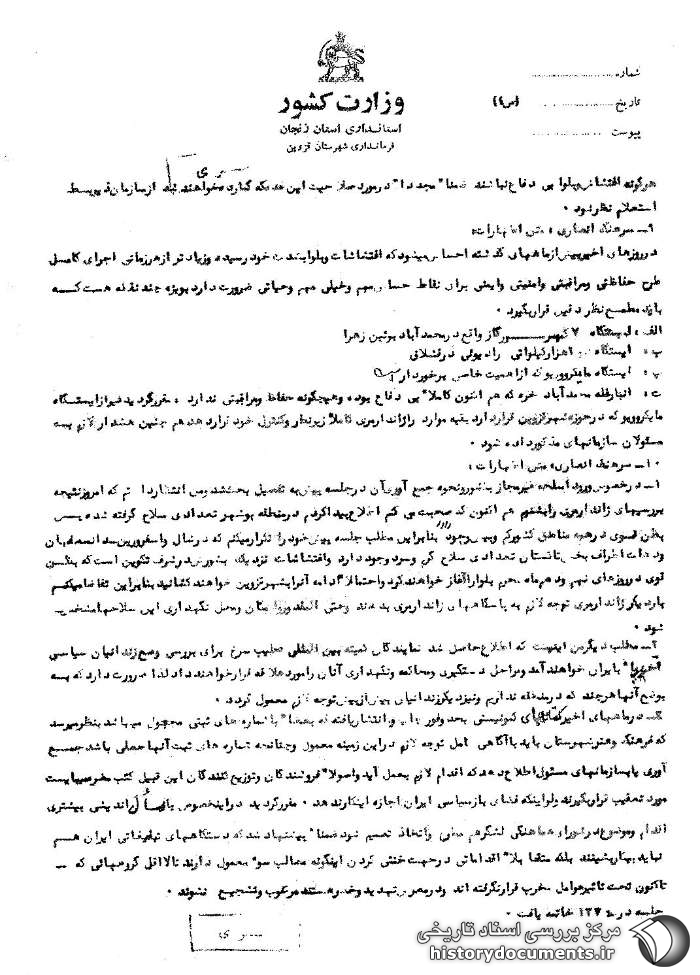 شماره
تاریخ (ص٤)
پیوست
وزارت کشور
استانداری استان زنجان
فرمانداری شهرستان قزوین
سری
هرگونه اغتشاش وبلوا بی دفاع نباشند ضمنا" مجددا" در مورد صلاحیت این عده که گمارده خواهند شد از سازمان ذیربط
استعلام نظر شود ۰
سرهنگ انصاری متن اظهارات:
در روزهای اخیر بیش از ماههای گذشته احساس میشود که اغتشاشات وبلوا بشدت خود رسیده وزیاد تر از هر زمانی اجرای کامل
طرح حفاظتی ومراقبتی وامنیتی وایمنی برای نقاط حساس ومهم وخیلی مهم وحیاتی ضرورت دارد بویژه چند نقطه هست که
باید مطمح نظر دقیق قرار گیرد ۰
الف: ایستگاه ۷ گاز واقع در محمدآباد بوئین زهرا
ب: ایستگاه هزار کیلواتی رادیوئی در
پ: ایستگاه مایکروویو که از اهمیت خاصی برخوردار است
ت: انبار غله محمدآباد خره که هم اکنون کاملا" بی دفاع بوده وهیچگونه حفاظ ومراقبتی ندارد ۰ مقرر گردید غیر از ایستگاه
مایکروویو که در حوزه شهر قزوین قرار دارد بقیه موارد را ژاندارمری کاملا" زیر نظر وکنترل خود قرار دهد هم چنین هشدار لازم به
مسئولان سازمانهای مذکور داده شود ۰
۱۰ـ سرهنگ انصاری: متن اظهارات:
۱ـ در خصوص ورود اسلحه غیر مجاز بکشور ونحوه جمع آوری آن در جلسه پیش به تفصیل بحث شد ومن انتظار داشتم که امروز نتیجه
بررسیهای ژاندارمری را بشنوم هم اکنون که صحبت می کنم اطلاع پیدا کردم در منطقه بوشهر تعدادی سلاح گرفته شده پس
بظن قوی در همه مناطق کشور کم وبیش وجود دارد بنابراین مطلب جلسه پیش خود را تکرار میکنم که در شال واسفرورین سد اسمعیلیان
ودهات اطراف بخش تاکستان تعدادی سلاح گرم وسرد وجود دارد واغتشاشات نزدیک بشورش در شرف تکوین است که بظن
قوی در روزهای نهم ودهم ماه محرم بلوا را آغاز خواهند کرد واحتمالا" ادامه آنرا بشهر قزوین خواهند کشانید بنابراین تقاضا میکنم
بار دیگر ژاندارمری توجه لازم به پاسگاههای ژاندارمری بدهند وحتی المقدور مکان ومحل نگهداری این سلاحها مشخص
شود ۰
۲ـ مطلب دیگر من اینست که اطلاع حاصل شد نمایندگان کمیته بین المللی صلیب سرخ برای بررسی وضع زندانیان سیاسی
اخیرا" بایران خواهند آمد ومراحل دستگیری ومحاکمه ونگهداری آنان را مورد علاقه قرار خواهند داد لذا ضرورت دارد که به
بوضع آنها هرچند که در منطقه نداریم ونیز دیگر زندانیان بیش از پیش توجه لازم معمول گردد ۰
۳ـ در ماههای اخیر کتابهای کمونیستی بحد وفور چاپ وانتشار یافته که بعضا" با شماره های ثبتی مجهول میباشد بنظر میرسد
که فرهنگ وهنر شهرستان باید با آگاهی کامل توجه لازم در این زمینه معمول وچنانچه شماره های ثبت آنها جعلی باشد جمع
آوری یا بسازمانهای مسئول اطلاع دهد که اقدام لازم بعمل آید واصولا" فروشندگان وتوزیع کنندگان این قبیل کتب مضر میبایست
مورد تعقیب قرار بگیرند ولو اینکه فضای باز سیاسی ایران اجازه اینکار ندهد ۰ مقرر گردید در اینخصوص با اندیشی بیشتری
اقدام وموضوع در شورای هماهنگی لشگر هم مطرح واتخاذ تصمیم شود ضمنا" پیشنهاد شد که دستگاههای تبلیغاتی ایران هم
نباید بیکار بنشینند بلکه متقابلا" اقداماتی در جهت خنثی کردن اینگونه مطالب سوء معمول دارند تا لااقل گروههائی که
تاکنون تحت تاثیر عوامل مخرب قرار نگرفته اند ودر معرض تهدید وخطر هستند مرعوب وتشجیع نشوند ۰
جلسه در خاتمه یافت ۰
سری
مرکز بررسی اسناد تاریخی
historydocuments.ir